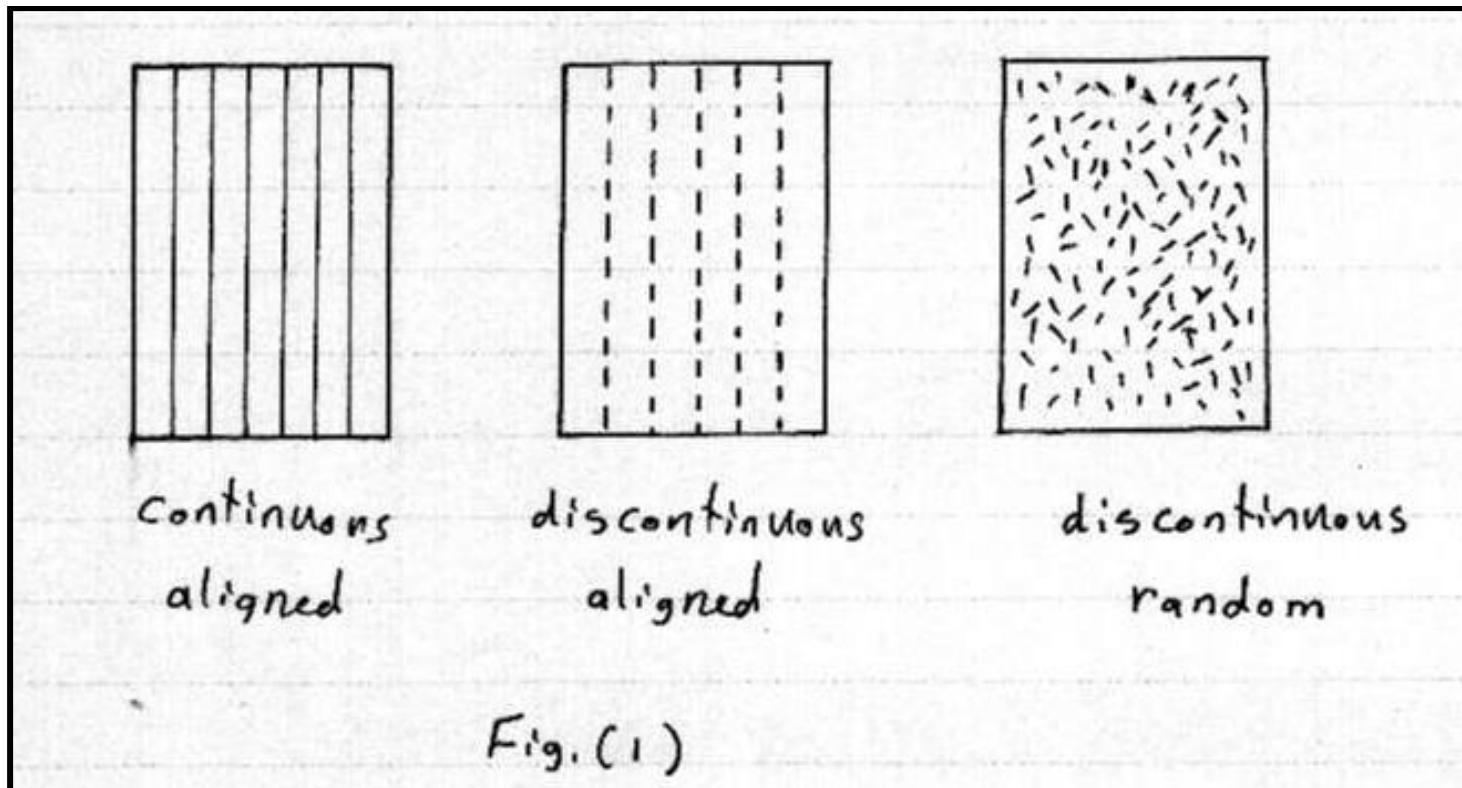 continuous
aligned
discontinuous
aligned
discontinuous
random
Fig. (1)